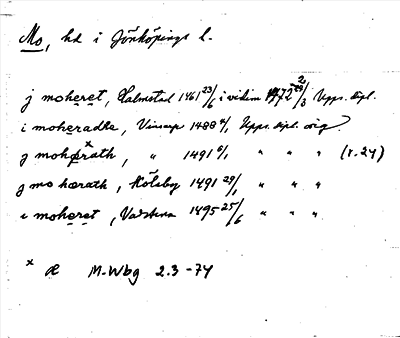 Mo, hd i Jönköpings l.
j moheret, Halmstad 1461 23/6 i vidim 1472 23/3 Upps. dipl.
i moheradhe, 1488 Upps. dipl. orig
j mohærath, " 1491 6/1 " " " (r. 24)
j mo hærath, 1491 29/1 " " "
i moheret, Vadstena 1495 25/6 " " "
x æ M-Wbg 2.3-74